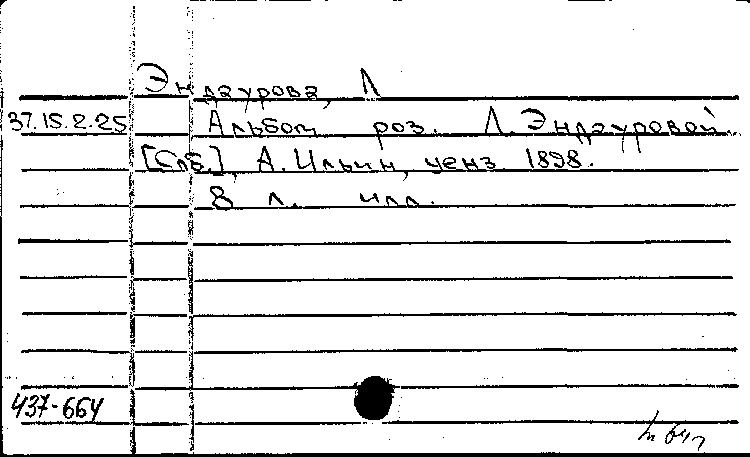 Эндаурова, Л
37.15.2.25 Альбом роз. Л. Эндауровой.
[Спб.], А. Ильин, ценз 1898.
8 л. илл.
437-664